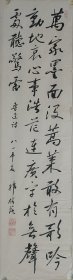 萬家墨面没蒿萊敢有歌吟
動地哀心事浩茫連廣宇於無聲
處聽驚雷
魯迅詩 八八年